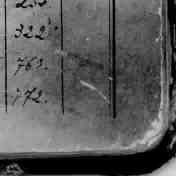 322.
763.
772.